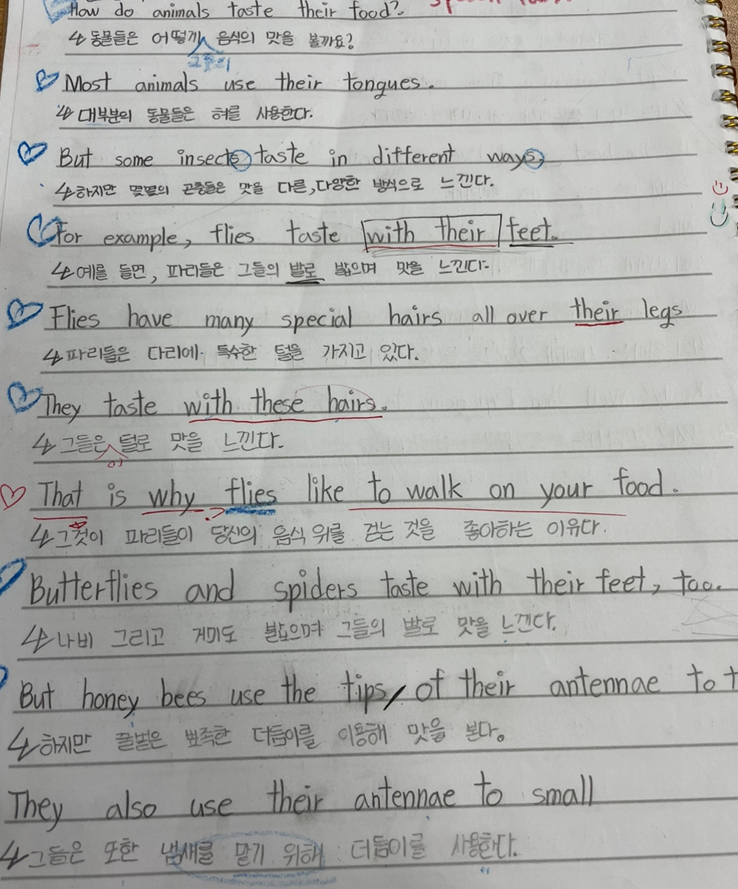 How do animals taste their food?
동물들은 어떻게 음식의 맛을 볼까요?
그들의
Most animals use their tongues.
대부분의 동물들은 혀를 사용한다.
But some insects taste in different ways
하지만 몇몇의 곤충들은 맛을 다른, 다양한 방식으로 느낀다.
For example, flies taste with their feet.
예를 들면, 파리들은 그들의 발로 밟으며 맛을 느낀다.
Flies have many special hairs all over their legs
파리들은 다리에 특수한 털을 가지고 있다.
They taste with these hairs.
그들은 털로 맛을 느낀다.
이
That is why flies like to walk on your food.
그것이 파리들이 당신의 음식 위를 걷는 것을 좋아하는 이유다.
Butterflies and spiders taste with their feet, too.
나비 그리고 거미도 밟으며 그들의 발로 맛을 느낀다.
But honey bees use the tips, of their antennae to t
하지만 꿀벌은 뾰족한 더듬이를 이용해 맛을 본다.
They also use their antennae to small
그들은 또한 냄새를 맡기 위해 더듬이를 사용한다.